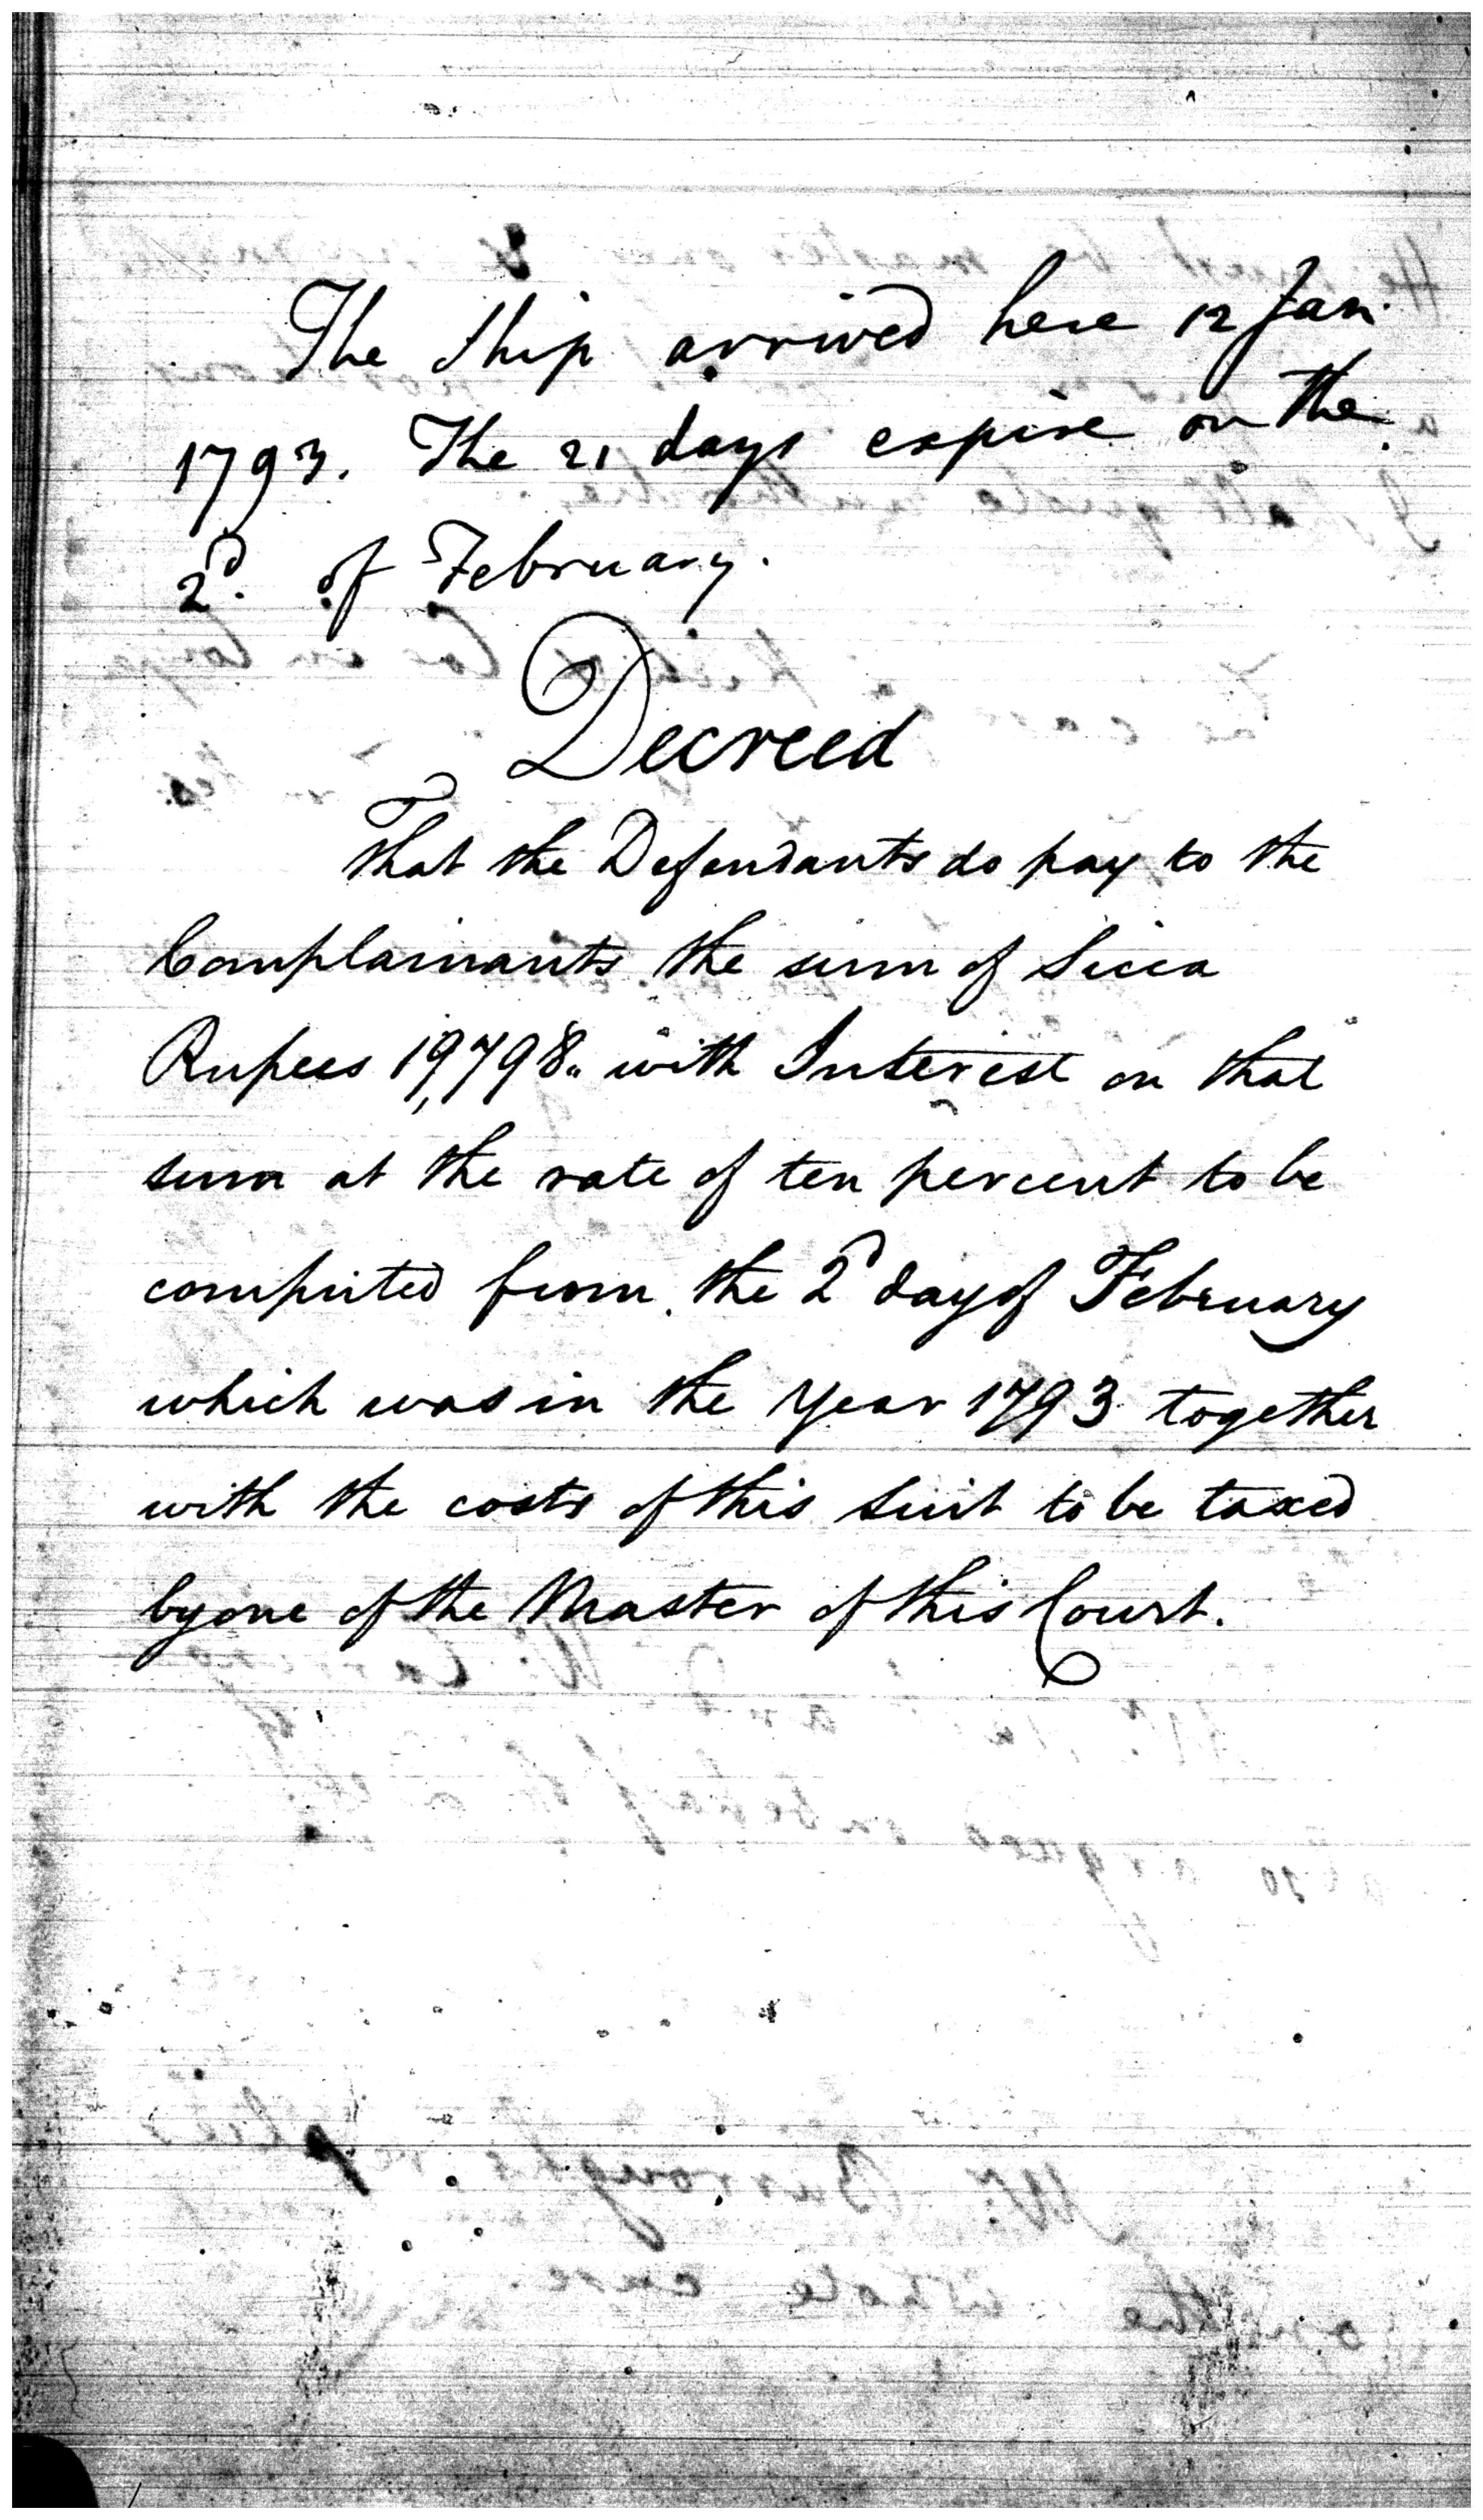 The Ship arrived here 12 Jan.
1793. The 21 days expire on the
2d. of February.
Decreed
That the Defendants do pay to the
Complainants the sum of Sicca
Rupees 19,798.. with Interest on that
sum at the rate of ten percent to be
computed from the 2d day of February
which was in the Year 1793 together
with the costs of this Suit to be taxed
by one of the Master of this Court.